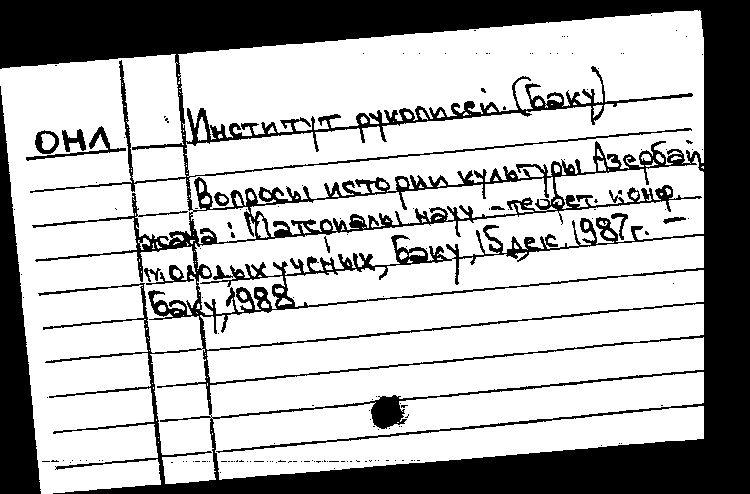 ОНЛ Институт рукописей. (Баку).
Вопросы истории культуры Азербай
жана: Материалы науч.-теорет. конф.
молодых ученых, Баку, 15 дек. 1987г. –
Баку, 1988.